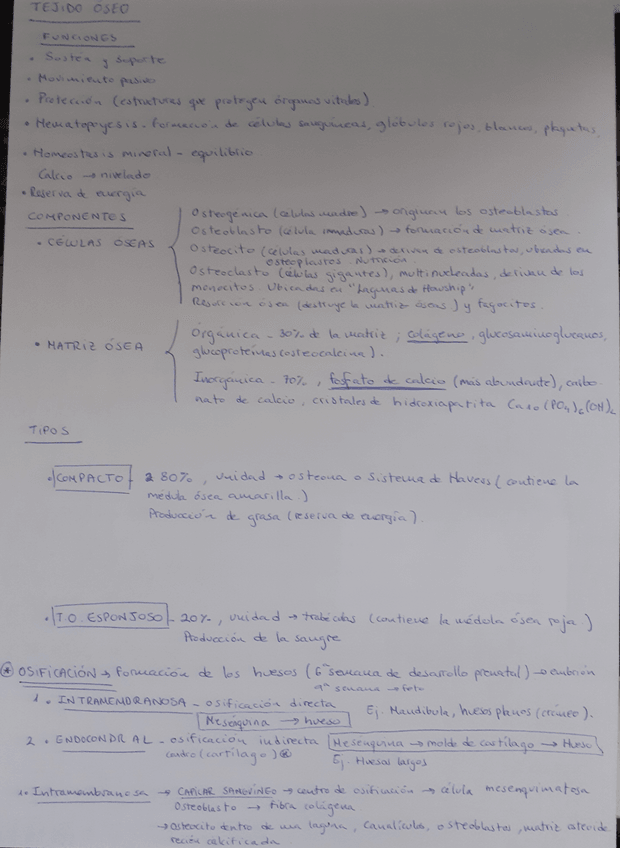 TEJIDO ÓSEO
FUNCIONES
• Sostén y soporte
• Movimiento pasivo
• Protección (estructuras que protegen órganos vitales)
• Hematopoyesis - formación de células sanguíneas, glóbulos rojos, blancos, plaquetas,
• Homeostasis mineral - equilibrio
Calcio → nivelado
• Reserva de energía
COMPONENTES
• CÉLULAS ÓSEAS
Osteogénica (células madre) → originan los osteoblastos
Osteoblasto (célula inmaduras) → formación de matriz ósea.
Osteocito (células maduras) → derivan de osteoblastos, ubicadas en
osteoplastos. Nutrición.
Osteoclasto (células gigantes), multinucleadas, derivan de los
monocitos. Ubicadas en "Lagunas de Howship"
Resorción ósea (destruye la matriz ósea) y fagocitos.
• MATRIZ ÓSEA
Orgánica - 30% de la matriz ; colágeno, glucosaminoglucanos,
glucoproteínas (osteocalcina).
Inorgánica - 70%, fosfato de calcio (más abundante), carbo
nato de calcio, cristales de hidroxiapatita Ca10(PO4)6(OH)2
TIPOS
• COMPACTO - 80%, unidad → osteona o Sistema de Havers (contiene la
médula ósea amarilla.)
Producción de grasa (reserva de energía)
• T.O. ESPONJOSO - 20%, unidad → trabéculas (contiene la médula ósea roja.)
Producción de la sangre
* OSIFICACIÓN → Formación de los huesos (6ª semana de desarrollo prenatal) → embrión
9ª semana → feto
1. INTRAMEMBRANOSA - osificación directa
Mesénquima → hueso
Ej. Mandíbula, huesos planos (cráneo).
2. ENDOCONDRAL - osificación indirecta Mesenquima → molde de cartílago → Hueso
(cartílago)
Ej. Huesos largos
1. Intramembranosa → CAPILAR SANGUÍNEO → centro de osificación → célula mesenquimatosa
Osteoblasto → fibra colágena
→ Osteocito dentro de una laguna, canalículos, osteoblastos, matriz osteoide
recién calcificada